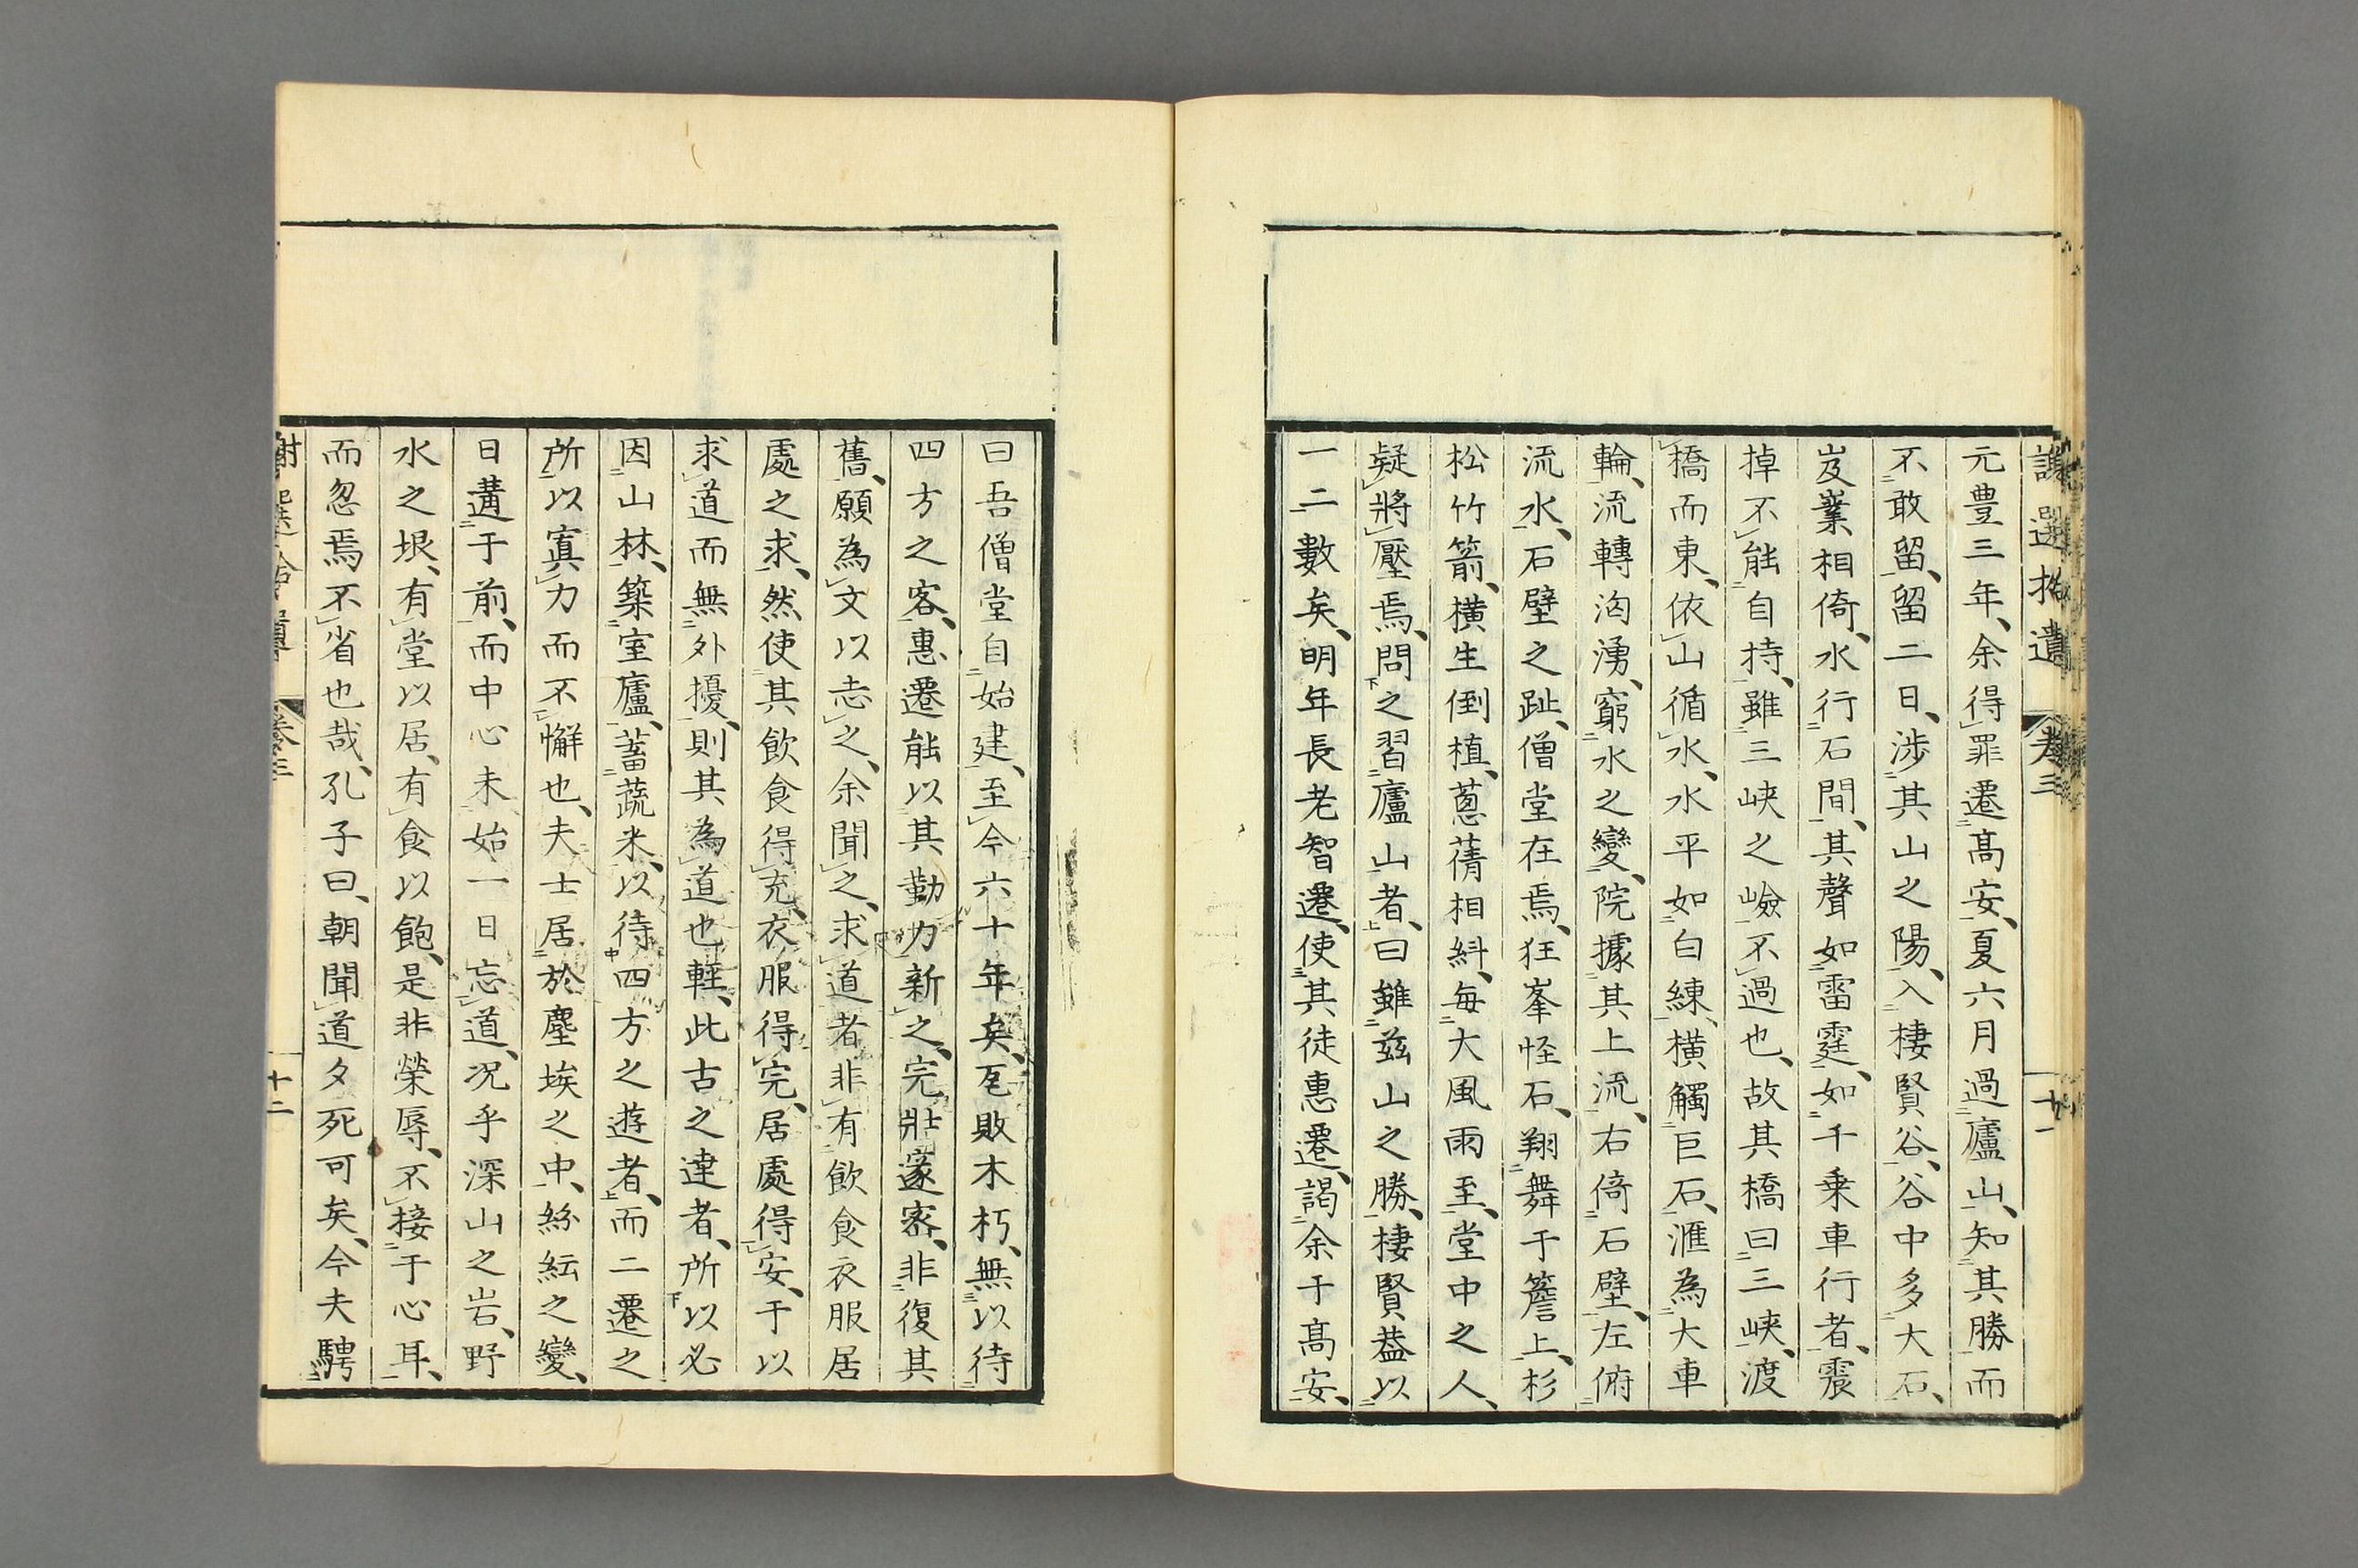 謝選拾遺 卷三 十一
元豊三年、余得罪遷髙安、夏六月過廬山、知其勝而
不敢留、留二日、渉其山之陽、入棲賢谷、谷中多大石、
岌嶪相倚、水行石間、其聲如雷霆、如千乗車行者、震
掉不能自持、雖三峡之嶮不過也、故其橋曰三峡、渡
橋而東、依山循水、水平如白練、横觸巨石、滙為大車
輪、流轉洶湧、窮水之變、院據其上流、右倚石壁、左俯
流水、石壁之趾、僧堂在焉、狂峯怪石、翔舞于簷上、杉
松竹箭、横生倒植、蔥蒨相糾、毎大風雨至、堂中之人、
疑將壓焉、問之習廬山者、曰雖茲山之勝、棲賢葢以
一二數矣、明年長老智遷、使其徒惠遷、謁余于髙安、
曰吾僧堂自始建、至今六十年矣、瓦敗木朽、無以待
四方之客、惠遷能以其勤力新之、完壯邃密、非復其
舊、願為文以志之、余聞之、求道者非有飲食衣服居
處之求、然使其飲食得充、衣服得完、居處得安、于以
求道而無外擾、則其為道也輕、此古之達者、所以必
因山林、築室廬、蓄蔬米、以待四方之遊者、而二遷之
所以寘力而不懈也、夫士居於塵埃之中、紛紜之變、
日遘于前、而中心未始一日忘道、况乎深山之岩、野
水之垠、有堂以居、有食以飽、是非榮辱、不接于心耳、
而忽焉不省也哉、孔子曰、朝聞道夕死可矣、今夫騁
謝選拾遺 卷三 十二